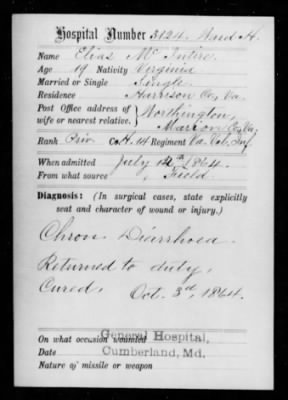 Hospital Number 3124. Ward H.
Name Elias Mc Intire.
Age 19 Nativity Virginia
Married or Single Single
Residence Harrison Co, Va.
Post Office address of
wife or nearest relative.
Worthington,
Marion Co, Va,
Rank Priv. Co H. 14 Regiment Va. Vol, Inf,
When admitted July 12th 1864.
From what source Field
Diagnosis: (In surgical cases, state explicitly
seat and character of wound or injury.)
Chron Diarrhoea
Returned to duty,
Cured, Oct. 3d, 1864.
On what occasion wounded
General Hospital,
Date
Cumberland, Md.
Nature of missile or weapon